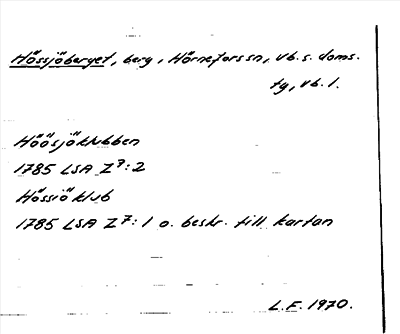 Hössjöberget, berg, Hörneforssn, Vb.s. doms.
tg, Vb. l.
Höösjöklubben
1785 LSA Z⁷:2
Hössiöklub
1785 LSA Z⁷:1 o. beskr. till kartan
L.F. 1970.